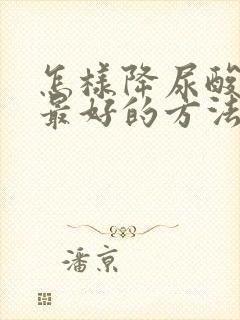 怎样降尿酸
最好的方法
潘京